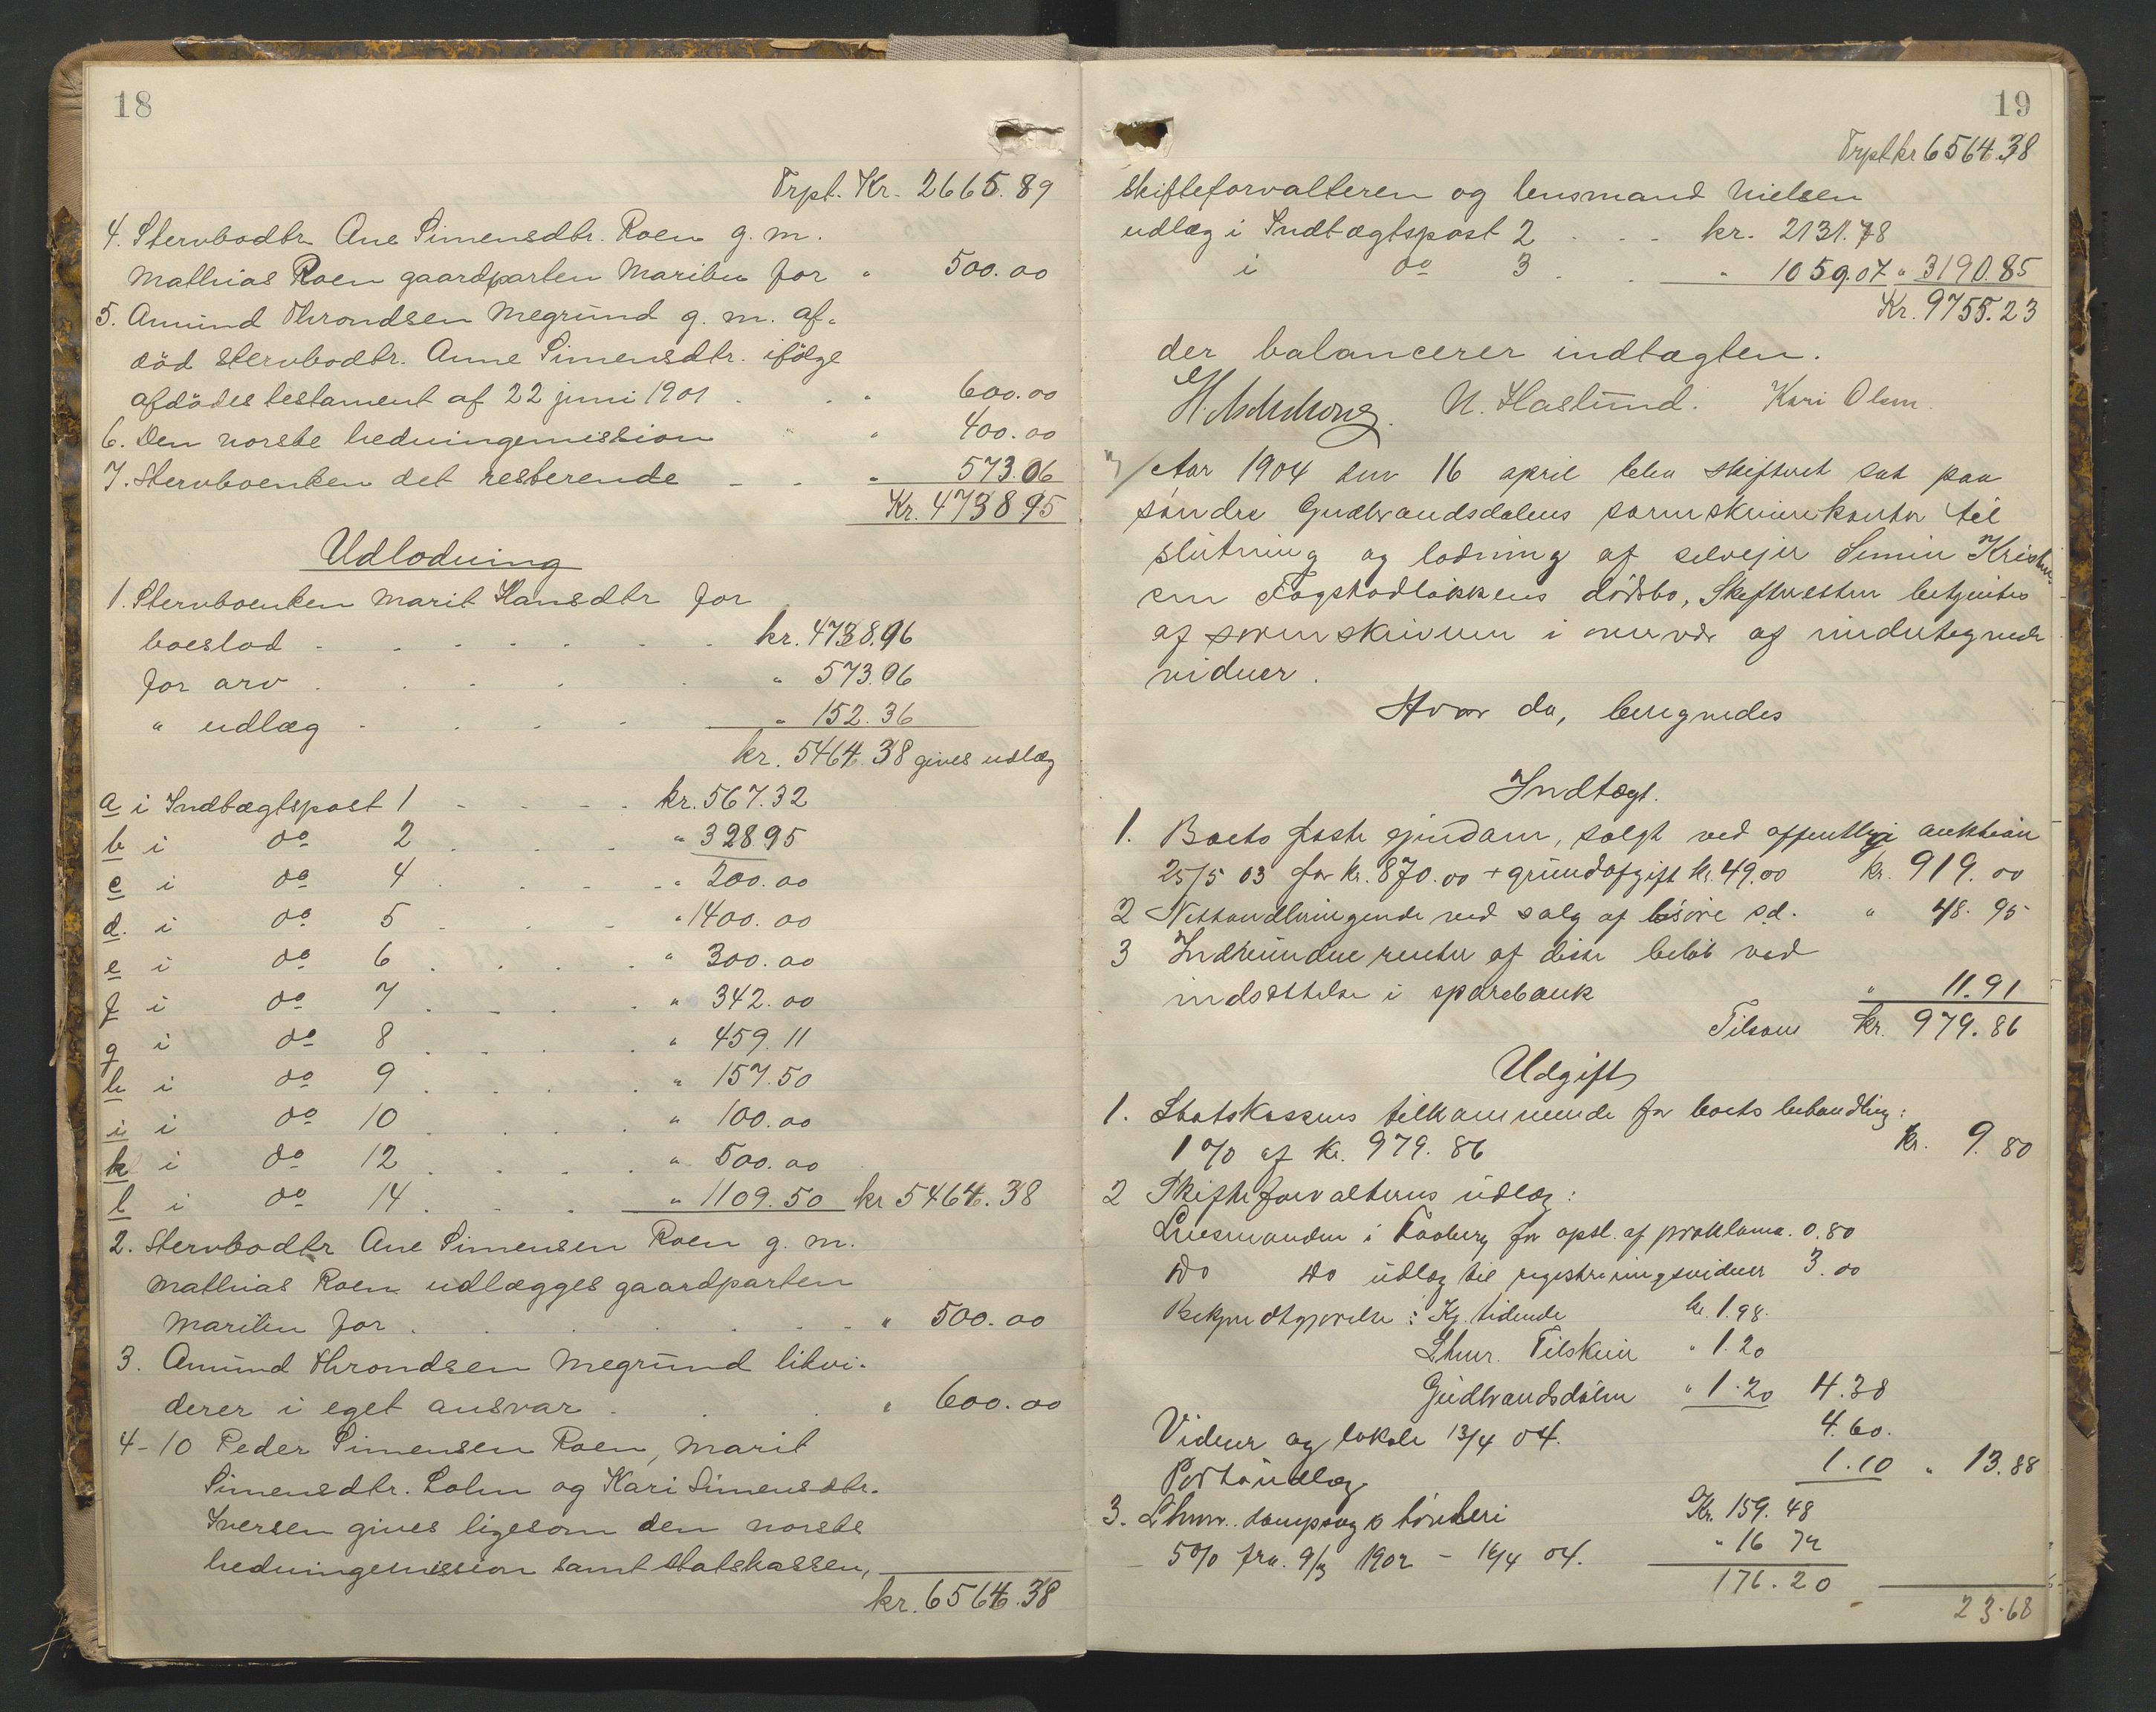 18
Trpt. Kr. 2665.89
4. Stervbodtr Ane Simensdtr. Roen g. m.
Mathias Roen gaardparten Maribu for " 500.00
5. Amund Throndsen Megrund g. m. af-
död stervbodtr. Anne Simensdtr. ifölge
afdödes testament af 22 juni 1901 . . " 600.00
6. Den norske hedningemission " 400.00
7. Stervboenken det resterende - - " 573.06
Kr. 4738.95
Udlodning
1. Stervboenken Marit Hansdtr for
boeslod . . . . . . . kr. 4738.96
for arv . . . . . " 573.06
" udlæg . . . . " 152.36
kr. 5464.38 gives udlæg
a i Indtægtspost 1 - - - - kr. 567.32
b i do 2 . . . " 328.95
c i do 4 . . . . " 200.00
d. i do 5 . . . " 1400.00
e i do 6 . . . . " 300.00
f i do 7 . . . . " 342.00
g i do 8 . . . . " 459.11
h i do 9 . . . . " 157.50
i i do 10 . . . . " 100.00
k i do 12 . . . . " 500.00
l i do 14 . . . " 1109.50 kr 5464.38
2. Stervbodtr Ane Simensen Roen g. m.
Mathias Roen udlægges gaardparten
Maribu for . . . . . . . " 500.00
3. Amund Throndsen Megrund likvi-
derer i eget ansvar . . . " 600.00
4-10 Peder Simensen Roen, Marit
Simensdtr. Lohn og Kari Simensdtr.
Iversen gives ligesom den norske
hedningemission samt statskassen,
kr. 6564.38
19
Trpt kr 6564.38
skifteforvalteren og lensmand Nielsen
udlæg i Indtægtspost 2 . - - kr. 2131.78
i do 3 . . " 1059.07 " 3190.85
Kr. 9755.23
der balancerer indtægten.
N. Haslund. Kari Olsen
Aar 1904 den 16 april blev skifteret sat paa
søndre Gudbrandsdalens sorenskriverkontor til
slutning og lodning af selveier Simen Kristi-
em Fagstadløkkens dödsbo, Skifteretten betjentes
af sorenskriveren i nærvær af undertegnede
vidner.
Hvor da, beregnedes
Indtægt.
1. Boets faste ejendom, solgt ved offentlig auktion
25/5 03 for kr. 870.00 + grundafgift kr. 49.00 kr. 919.00
2 Nettoudbringende ved salg af løsøre s.d. " 48.95
3 Indvundne renter af disse beløb ved
indsættelse i sparebank " 11.91
Tilsam kr. 979.86
Udgift
1. Statskassens tilkommende for boets behandling:
1 % af kr. 979.86 kr. 9.80
2 Skifteforvalterens udlæg:
Lensmanden i Faaberg for opsl. af proklama. 0.80
do do udlæg til registreringsvidner 3.00
Bekjendtgjørelse: Kg. tidende kr. 1.98.
Lhmr. Tilskuer " 1.20
Gudbrandsdølen " 1.20 4.38
Vidner og lokale 13/4 04. 4.60.
Portoudlæg 1.10 " 13.88
3. Lhmr. dampsag & tønderi Kr. 159.48
5 % fra 9/3 1902 - 16/4 04. " 16 72
176.20
23.68